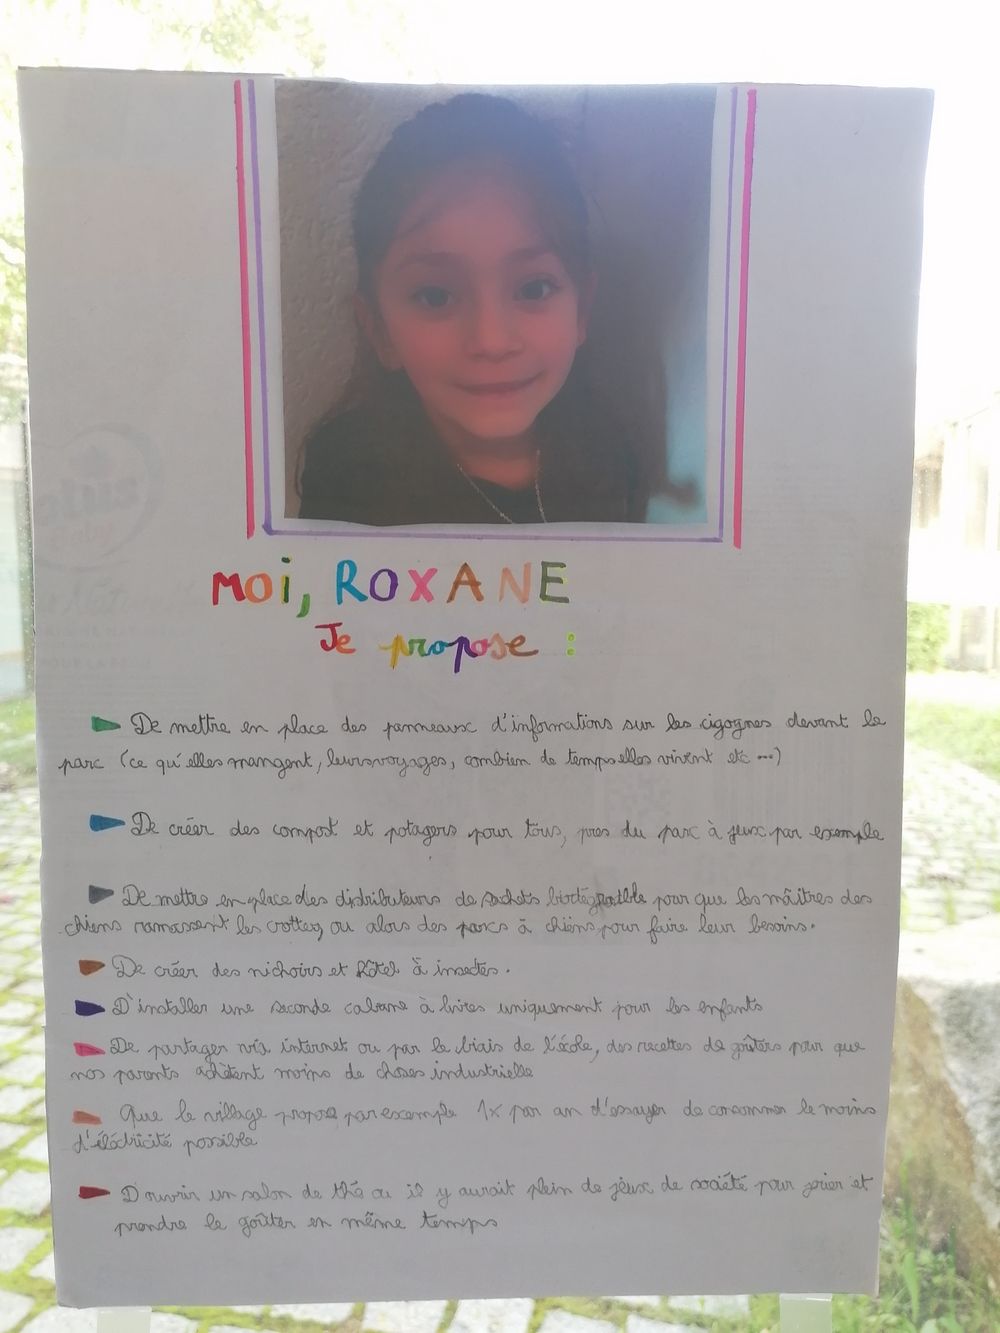 MOI, ROXANE
Je propose :
De mettre en place des panneaux d'informations sur les cigognes devant le
parc (ce qu'elles mangent, leurs voyages, combien de temps elles vivent etc ...)
De créer des compost et potagers pour tous, pres du parc à jeux par exemple
De mettre en place des distributeurs de sachets pour que les maîtres des
chiens ramassent les crottes, ou alors des parcs à chiens pour faire leur besoins.
De créer des nichoirs et hôtel à insectes.
D'installer une seconde cabane à livres uniquement pour les enfants
De partager via internet ou par le biais de l'école, des recettes de goûters pour que
nos parents achètent moins de choses industrielle
Que le village propose par exemple 1x par an d'essayer de consommer le moins
d'éléctricité possible
D'ouvrir un salon de thé ou il y aurait plein de jeux de société pour jouer et
prendre le goûter en même temps